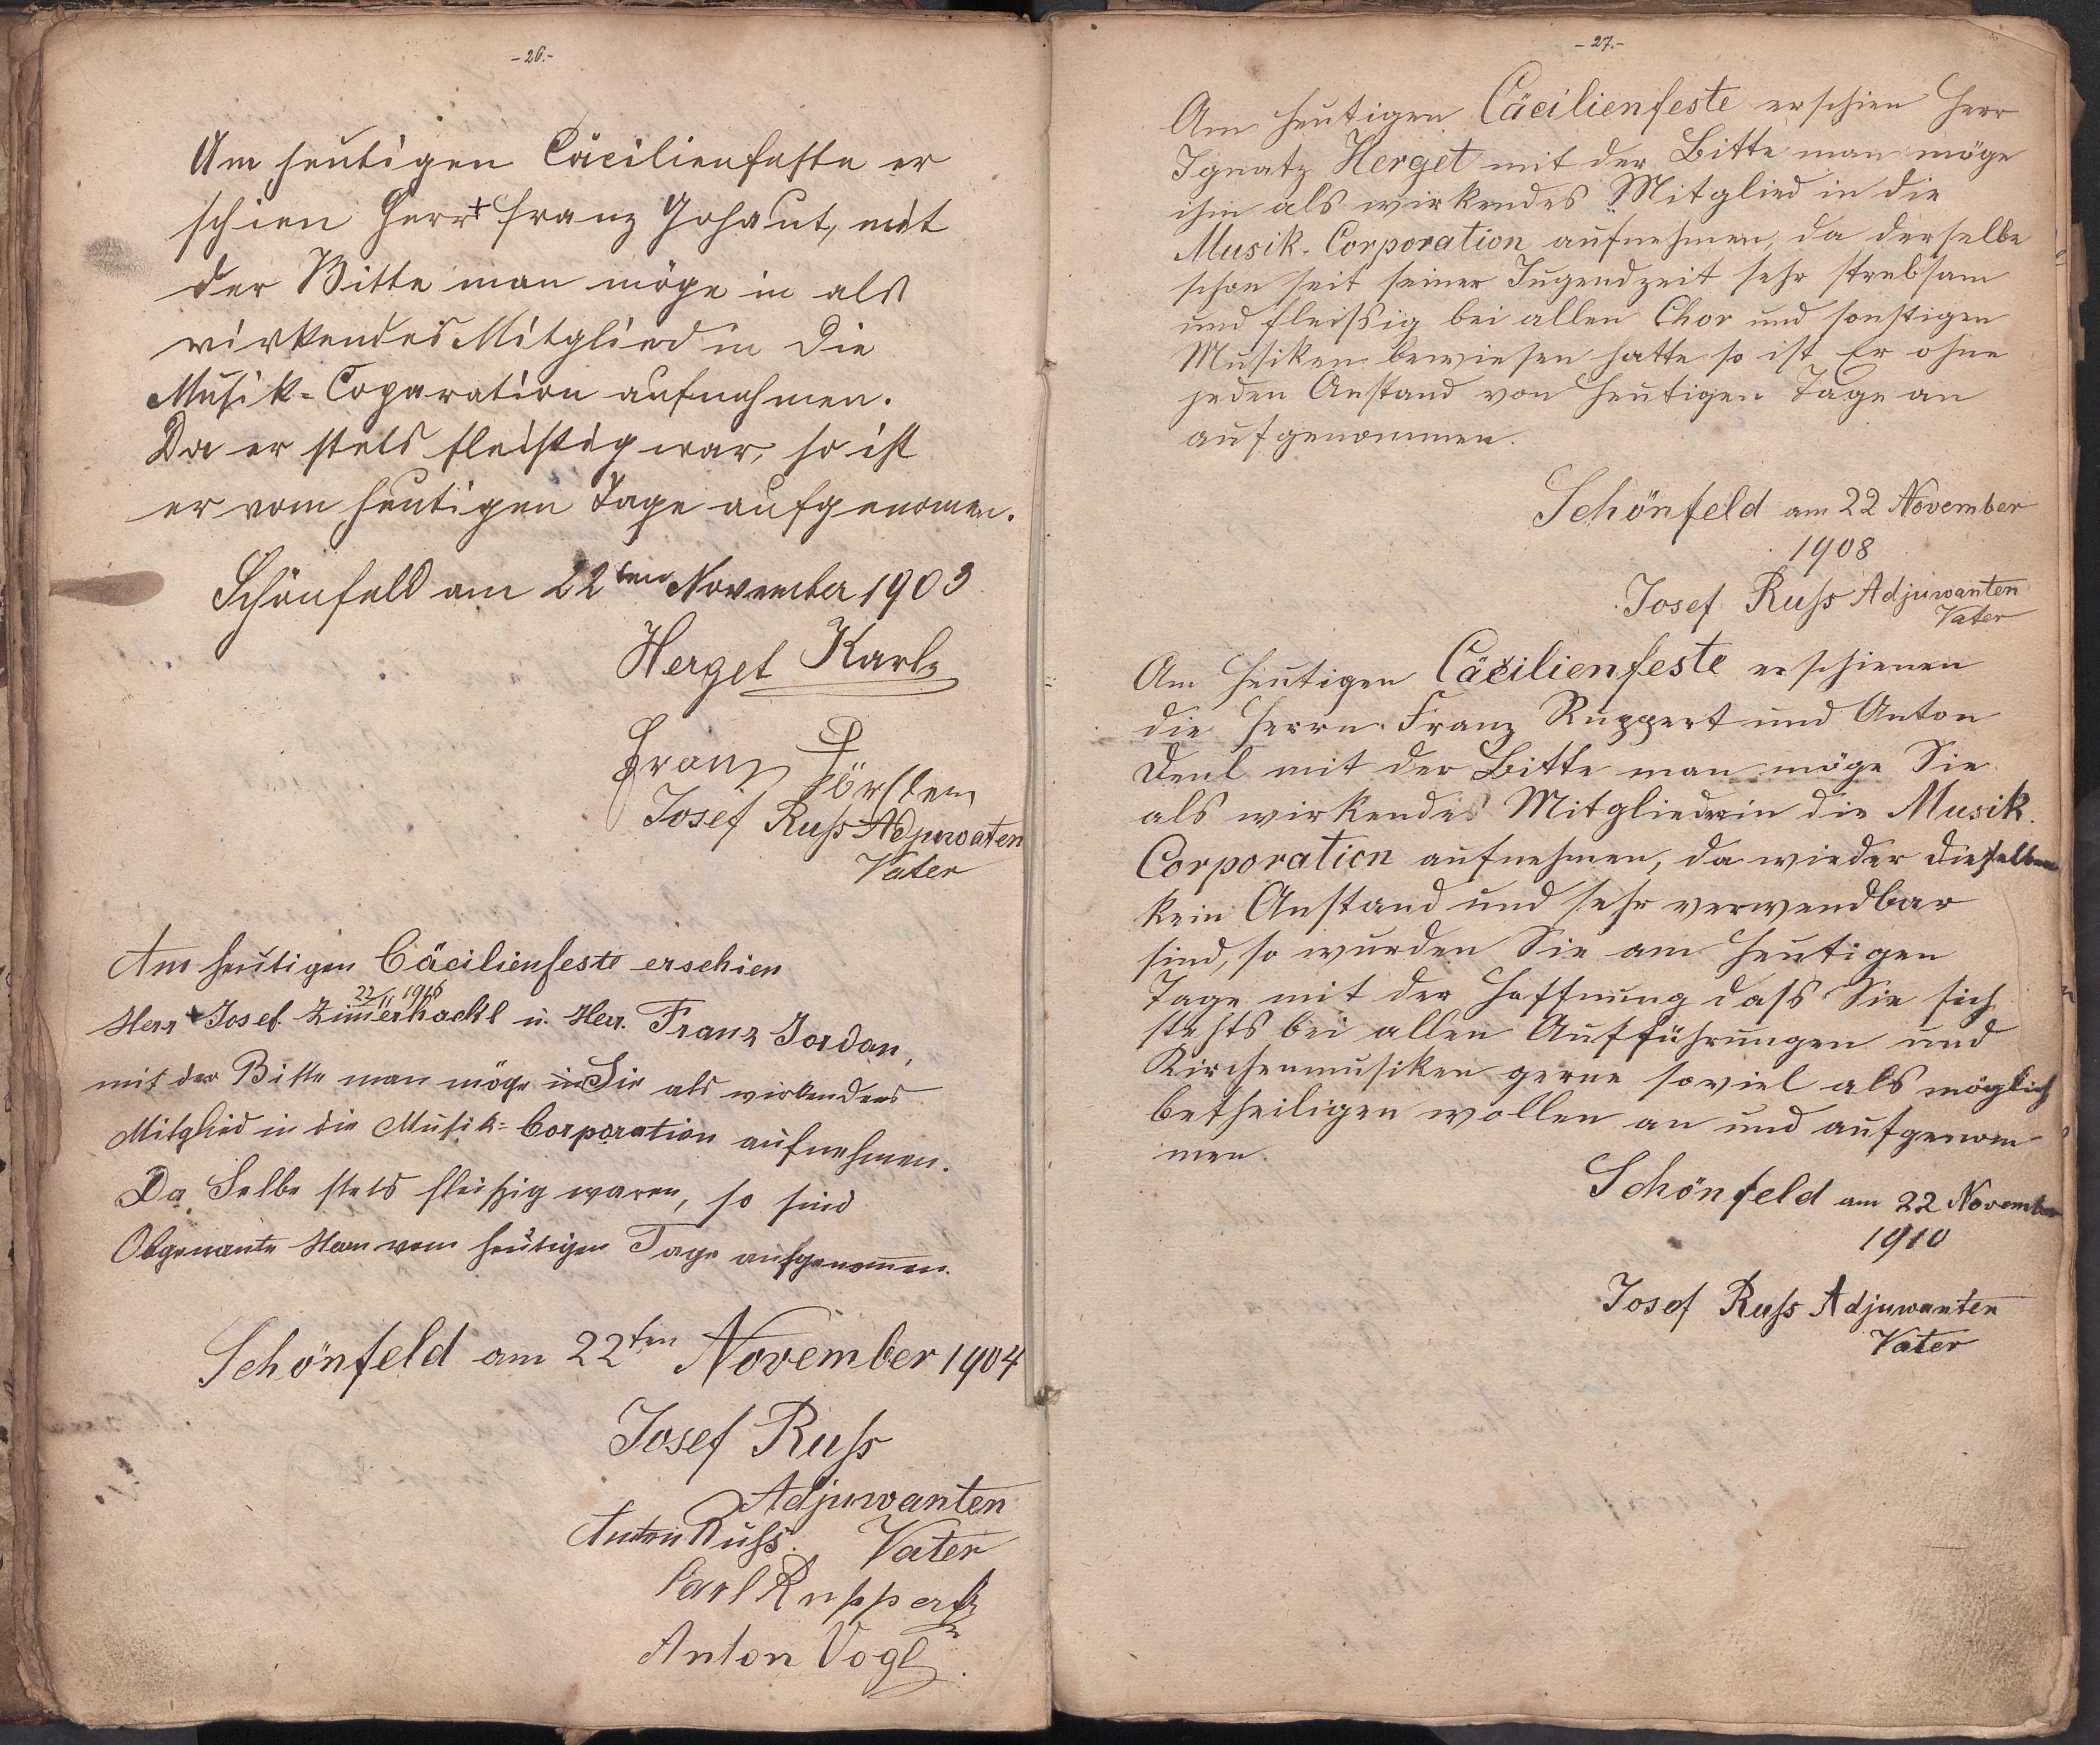 - 26.-
Am heutigen Cäcilienfeste er
schien Herr + Franz Johaut, mit
der Bitte man möge in als
wirkendes Mitglied in die
Musik-Coparation aufnehmen.
Da er stets fleißig war, so ist
er vom heutigen Tage aufgenomen.
Schönfeld am 22ten November 1903
Herget Karl
Franz
Josef Ruß Adjuwaten
Vater
Am heutigen Cäcilienfeste erschien
22/11
Herr + Josef Zimerhackl u. Herr. Franz Jordan,
mit der Bitte man möge Sie als wirkendes
Mitglied in die Musik-Corporation aufnehmen.
Da Selbe stets fleißig waren, so sind
Obgenante Herrn vom heutigen Tage aufgenomen.
Schönfeld am 22ten November 1904
Josef Ruß
Adjuwanten
Anton Ruß. Vater
Carl Ruppert
Anton Vogl
- 27.-
Am heutigen Cäcilienfeste erschien Herr
Ignatz Herget mit der Bitte man möge
ihn als wirkendes Mitglied in die
Musik-Corporation aufnehmen, da derselbe
schon seit seiner Jugendzeit sehr strebsam
und fleißig bei allen Chor und sonstigen
Musiken bewiesen hatte so ist Er ohne
jeden Anstand von heutigen Tage an
aufgenommen.
Schönfeld am 22 November
1908
Josef Ruß Adjuwanten
Vater
Am heutigen Cäcilienfeste erschienen
die Herrn Franz Ruppert und Anton
Denl mit der Bitte man möge Sie
als wirkendes Mitglieder in die Musik.
Corporation aufnehmen, da wieder dieselben
kein Anstand und sehr verwendbar
sind, so wurden Sie am heutigen
Tage mit der Hoffnung daß Sie sich
stehts bei allen Aufführungen und
Kirchenmusiken gerne soviel als möglich
betheiligen wollen an und aufgenom
men.
Schönfeld am 22 November
1910
Josef Ruß Adjuwanten
Vater